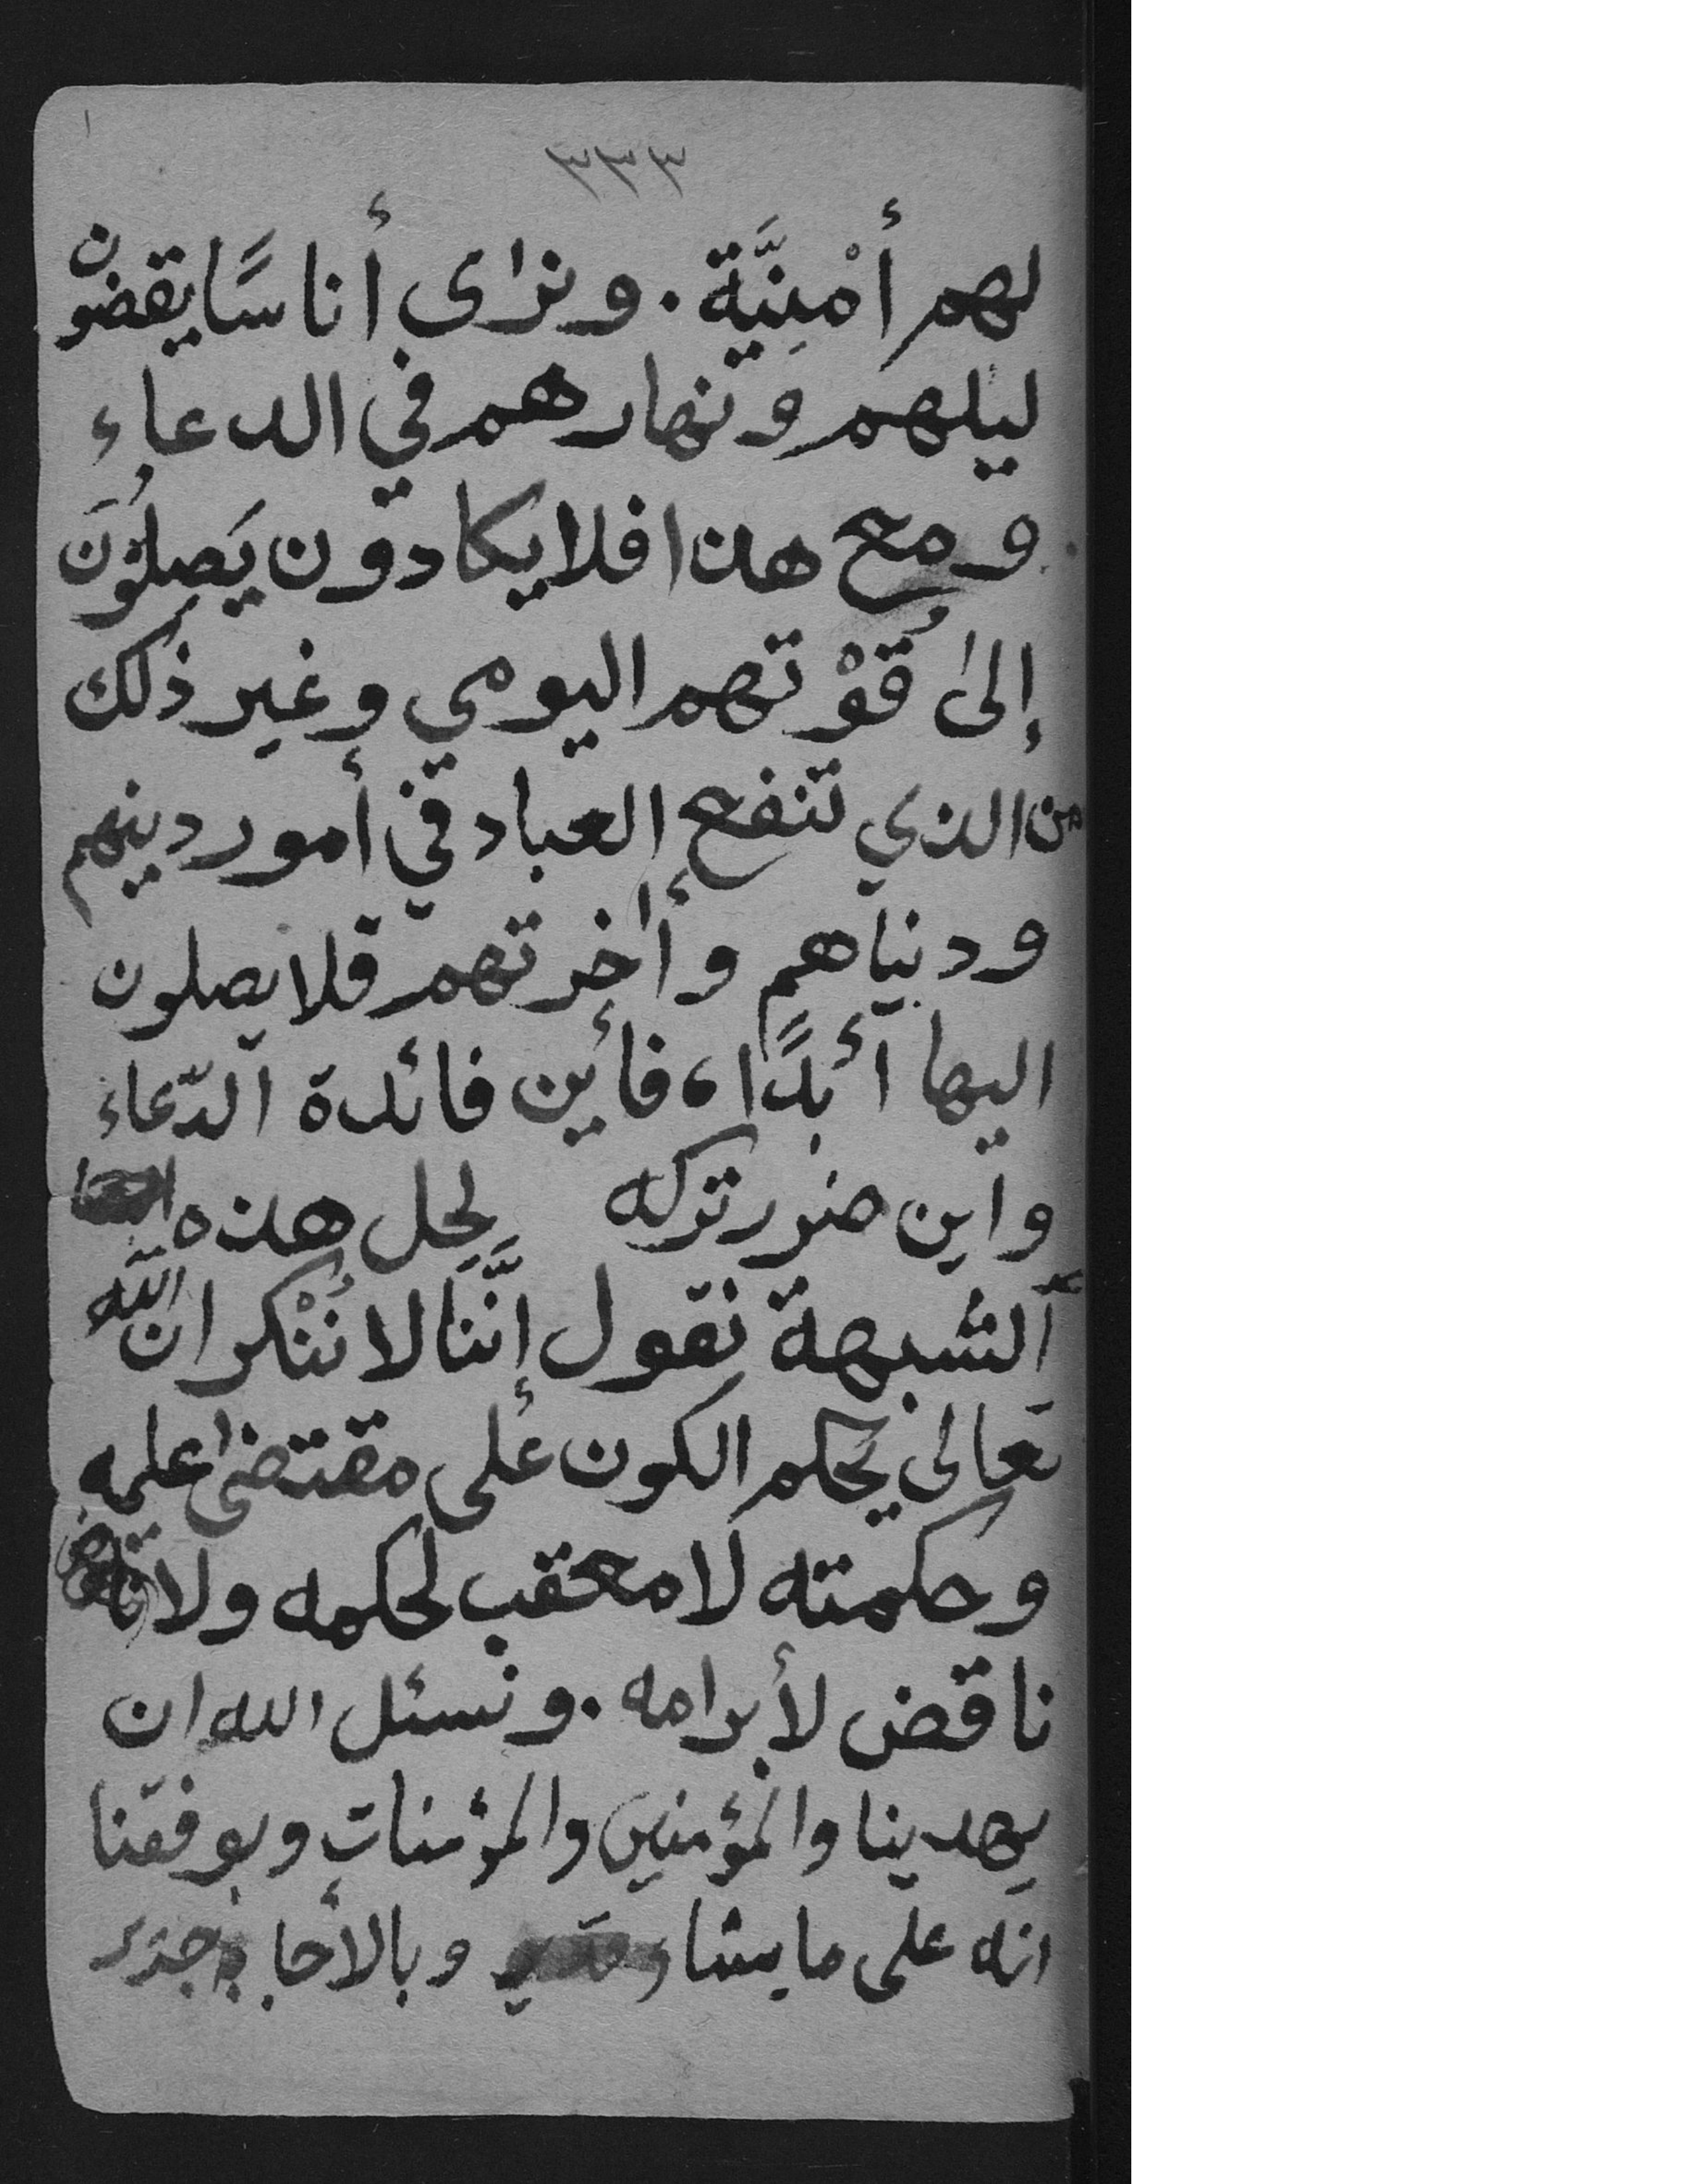 ٣٣٣
لهم أمْنِيَّة . ونرٰى أناسًا يقضون
ليلهم ونهارهم في الدعاء
ومع هذا فلا يكادون يَصِلُوْنَ
إلىٰ قُوْتهم اليومي وغير ذٰلك
من الذي تنفع العباد في أمور دينهم
ودنياهم وأٰخرتهم فلا يصلون
اليها أَبدًا، فأين فائدة الدّعاء
واين ضرر تركه لِحل هذه
الشبهة نقول إنَّنا لا نُنْكر ان اللّٰه
تعالى يحكم الكون على مقتضىٰ علمه
وحكمته لا معقب لحكمه ولا
ناقض لأبرامه . ونسئل الله ان
يهدينا والمؤمنين والمؤمنات ويوفقنا
انه على ما يشاء قدير وبالأجابة جدير